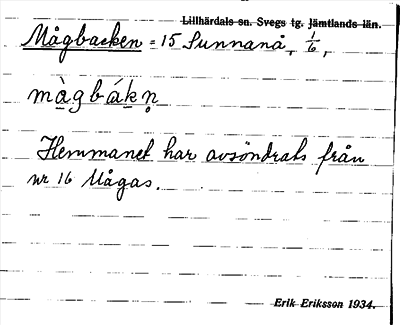 Lillhärdals sn. Svegs tg. Jämtlands län.
Mågbacken = 15 Sunnanå, 1/6,
màgbákn̥
Hemmanet har avsöndrats från
nr 16 Mågas.
Erik Eriksson 1934.